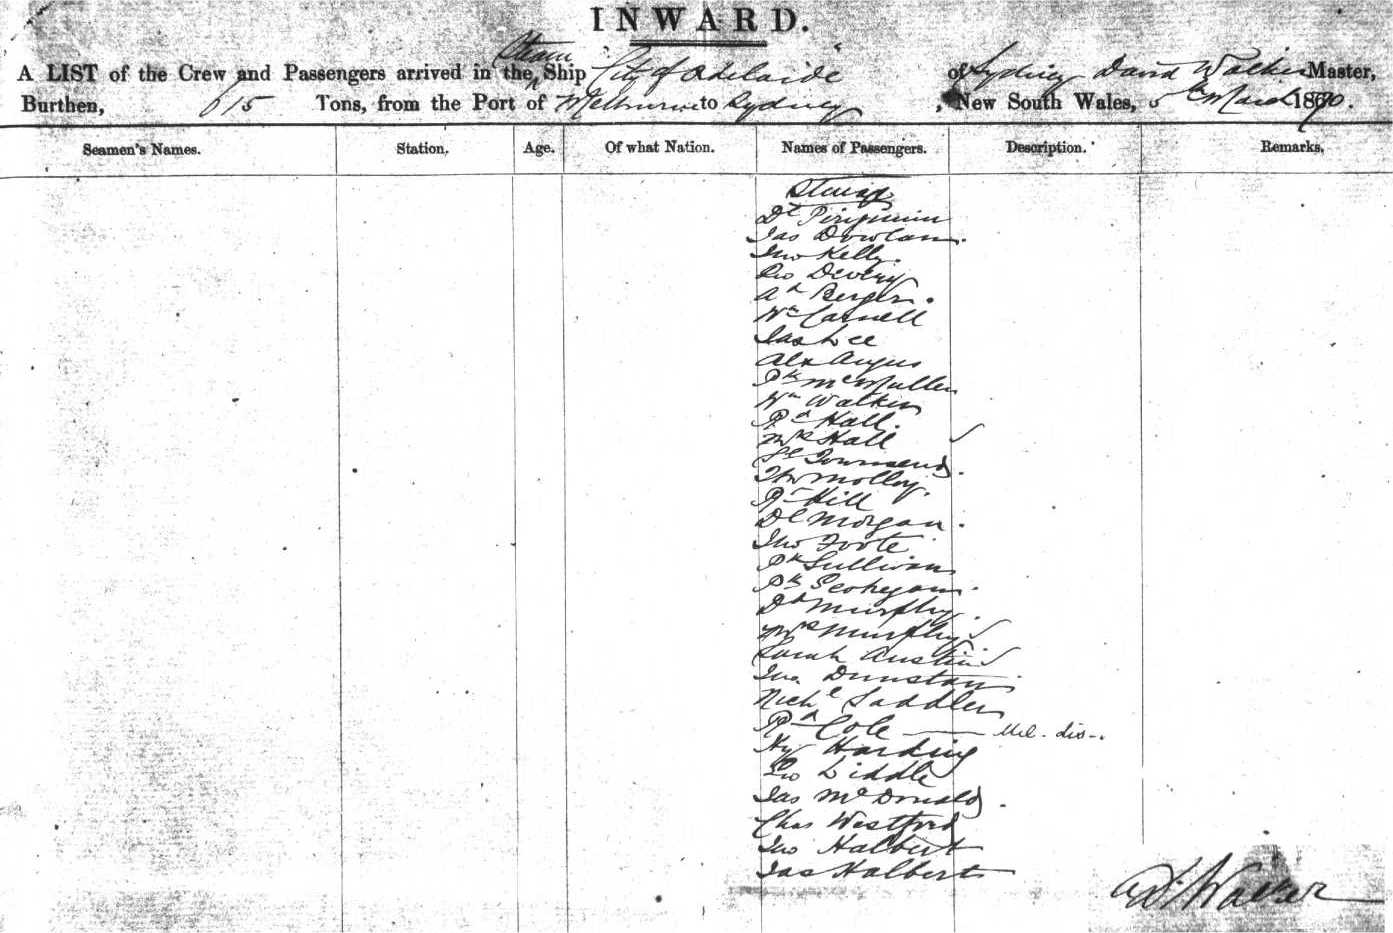 INWARD.
Steam
A LIST of the Crew and Passengers arrived in the ^ Ship City of Adelaide of Sydney David Walker Master,
Burthen, 615 Tons, from the Port of Melbourne to Sydney, New South Wales, 5th March 1870.
Seamen's Names. Station. Age. Of what Nation. Names of Passengers. Description. Remarks.
Steerage
Dl
Jas Dowlan
Jno Kelly.
Geo Devery
Ad Berger.
Wm Casnell
Jas Lee
Alx Angus
Pk McMullen
Wm Walker
Rd Hall.
Mrs Hall
Townsend.
Thos Molloy.
Hill
Dl Morgan.
Jno Foote
Pk Sullivan
Pk Geohegan.
Dd Murphy.
Mrs Murphy
Sarah Austin
Jno. Dunstan
Nichl Saddler
Rd Cole — Mel. dis-.
Hy Harding
Geo Liddle
Jas McDonald.
Chas Westford
Jno Halbert
Jas Halbert
Walker